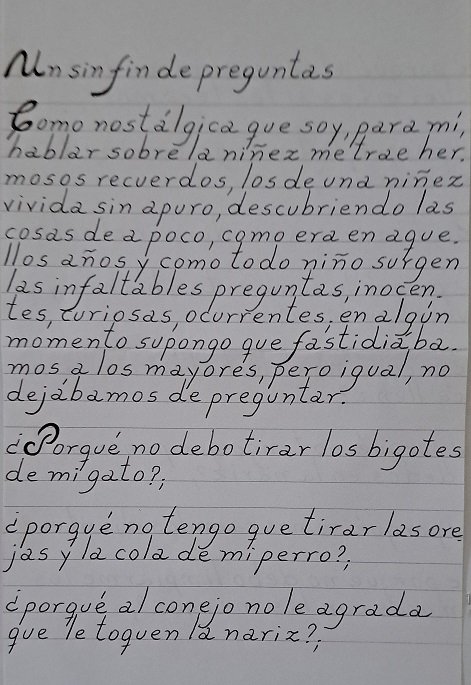 Un sin fin de preguntas
Como nostálgica que soy, para mí,
hablar sobre la niñez me trae her.
mosos recuerdos, los de una niñez
vivida sin apuro, descubriendo las
cosas de a poco, como era en aque.
llos años y como todo niño surgen
las infaltables preguntas, inocen.
tes, curiosas, ocurrentes; en algún
momento supongo que fastidiába.
mos a los mayores, pero igual, no
dejábamos de preguntar.
¿Porqué no debo tirar los bigotes
de mi gato?;
¿porqué no tengo que tirar las ore
jas y la cola de mi perro?;
¿porqué al conejo no le agrada
que le toquen la nariz?;